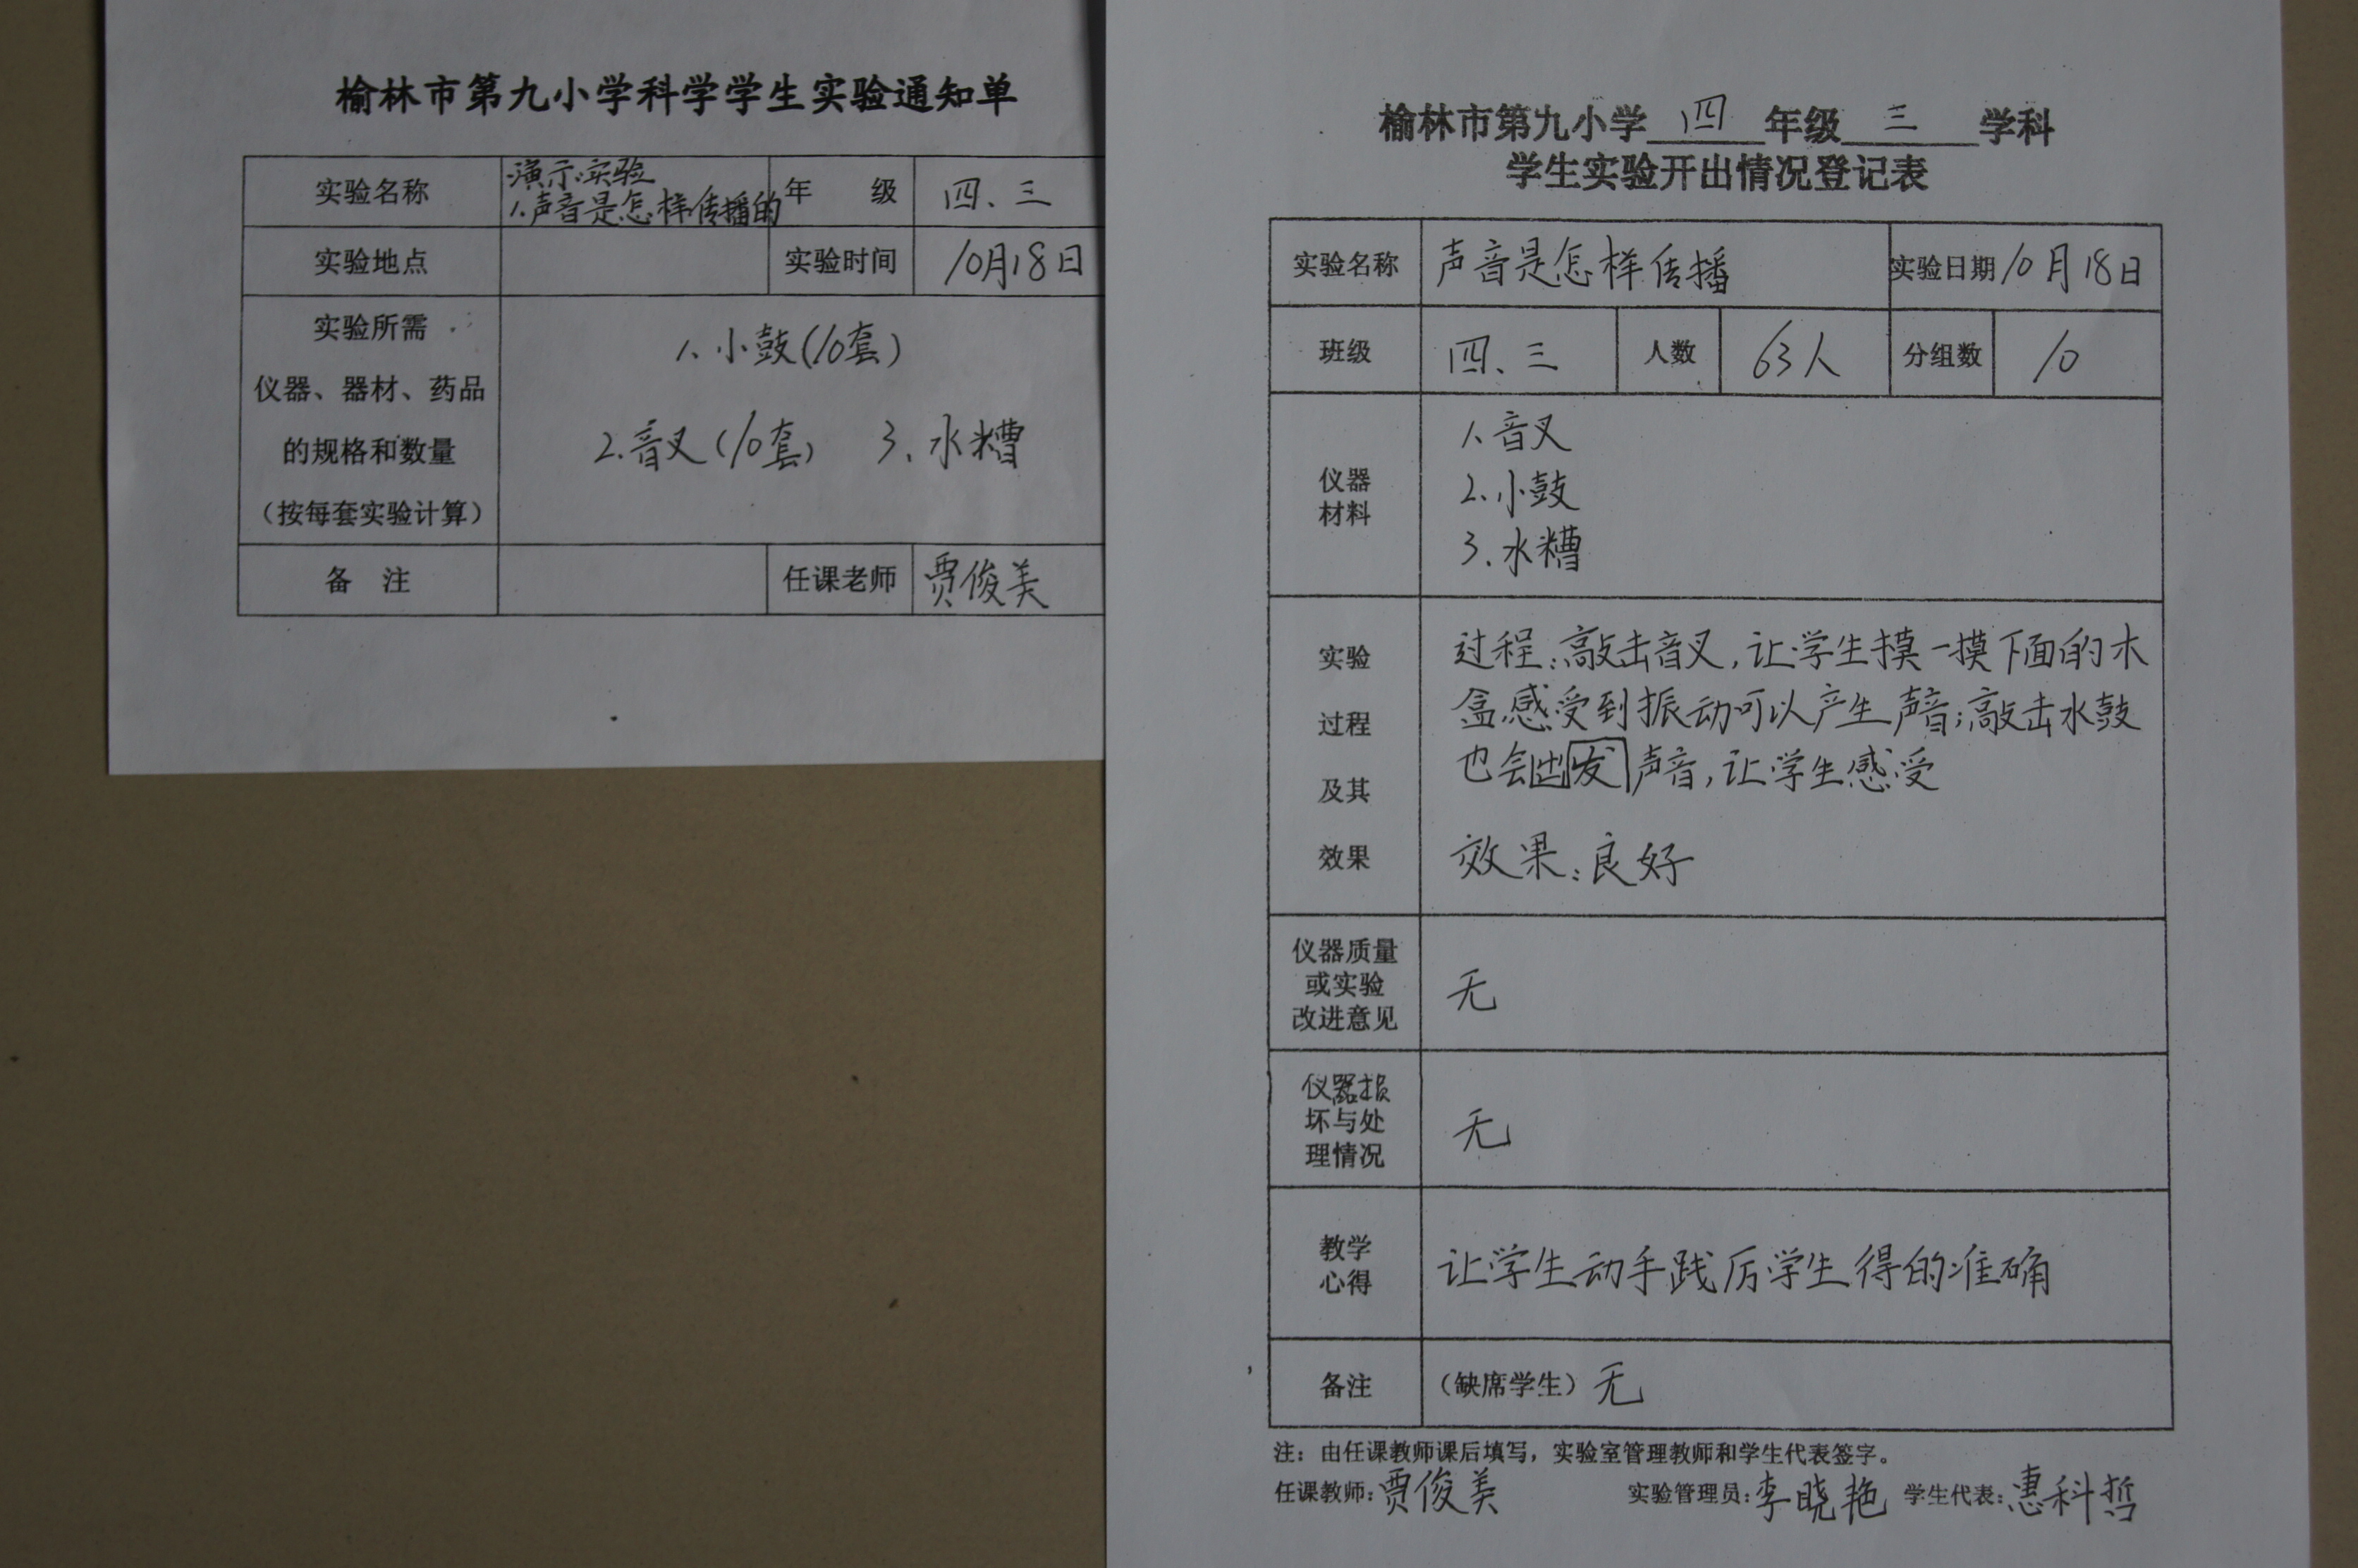 榆林市第九小学科学学生实验通知单
实验名称 演示实验
1.声音是怎样传播的 年 级 四、三
实验地点 实验时间 10月18日
实验所需
仪器、器材、药品
的规格和数量
（按每套实验计算）
1、小鼓(10套)
2.音叉(10套) 3、水槽
备 注 任课老师 贾俊美
榆林市第九小学 四 年级 三 学科
学生实验开出情况登记表
实验名称 声音是怎样传播 实验日期 10月18日
班级 四、三 人数 63人 分组数 10
仪器
材料
1、音叉
2、小鼓
3、水槽
实验
过程
及其
效果
过程:敲击音叉,让学生摸一摸下面的木
盒感受到振动可以产生声音;敲击水鼓
也会出发声音,让学生感受
效果:良好
仪器质量
或实验
改进意见
无
仪器损
坏与处
理情况
无
教学
心得
让学生动手践厉学生得的准确
备注 （缺席学生）无
注：由任课教师课后填写，实验室管理教师和学生代表签字。
任课教师:贾俊美 实验管理员:李晓艳 学生代表:惠科哲